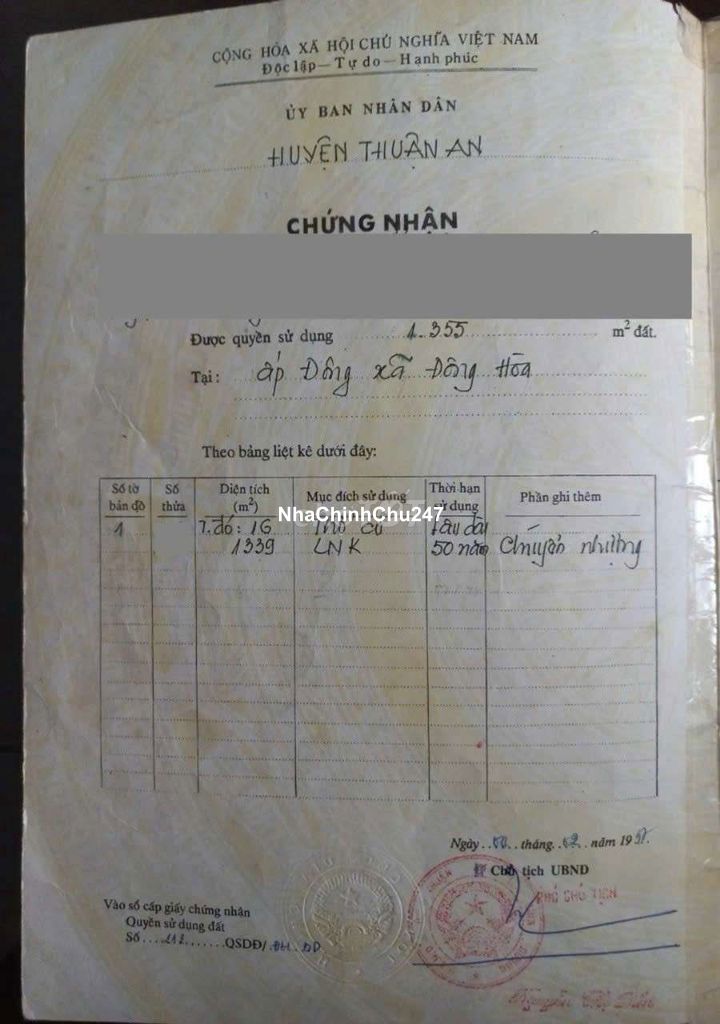 CỘNG HÒA XÃ HỘI CHỦ NGHĨA VIỆT NAM
Độc lập — Tự do — Hạnh phúc
ỦY BAN NHÂN DÂN
HUYỆN THUẬN AN
CHỨNG NHẬN
Được quyền sử dụng 1.355 m² đất.
Tại: ấp Đông xã Đông Hòa
Theo bảng liệt kê dưới đây:
Số tờ bản đồ Số thửa Diện tích (m²) Mục đích sử dụng Thời hạn sử dụng Phần ghi thêm
NhaChinhChu247
1 T.đó: 16 Thổ cư Lâu dài
1339 LNK 50 năm Chuyển nhượng
Ngày tháng 02 năm 199
Chủ tịch UBND
PHÓ CHỦ TỊCH
Vào sổ cấp giấy chứng nhận
Quyền sử dụng đất
Số 212 QSDĐ/
Nguyễn